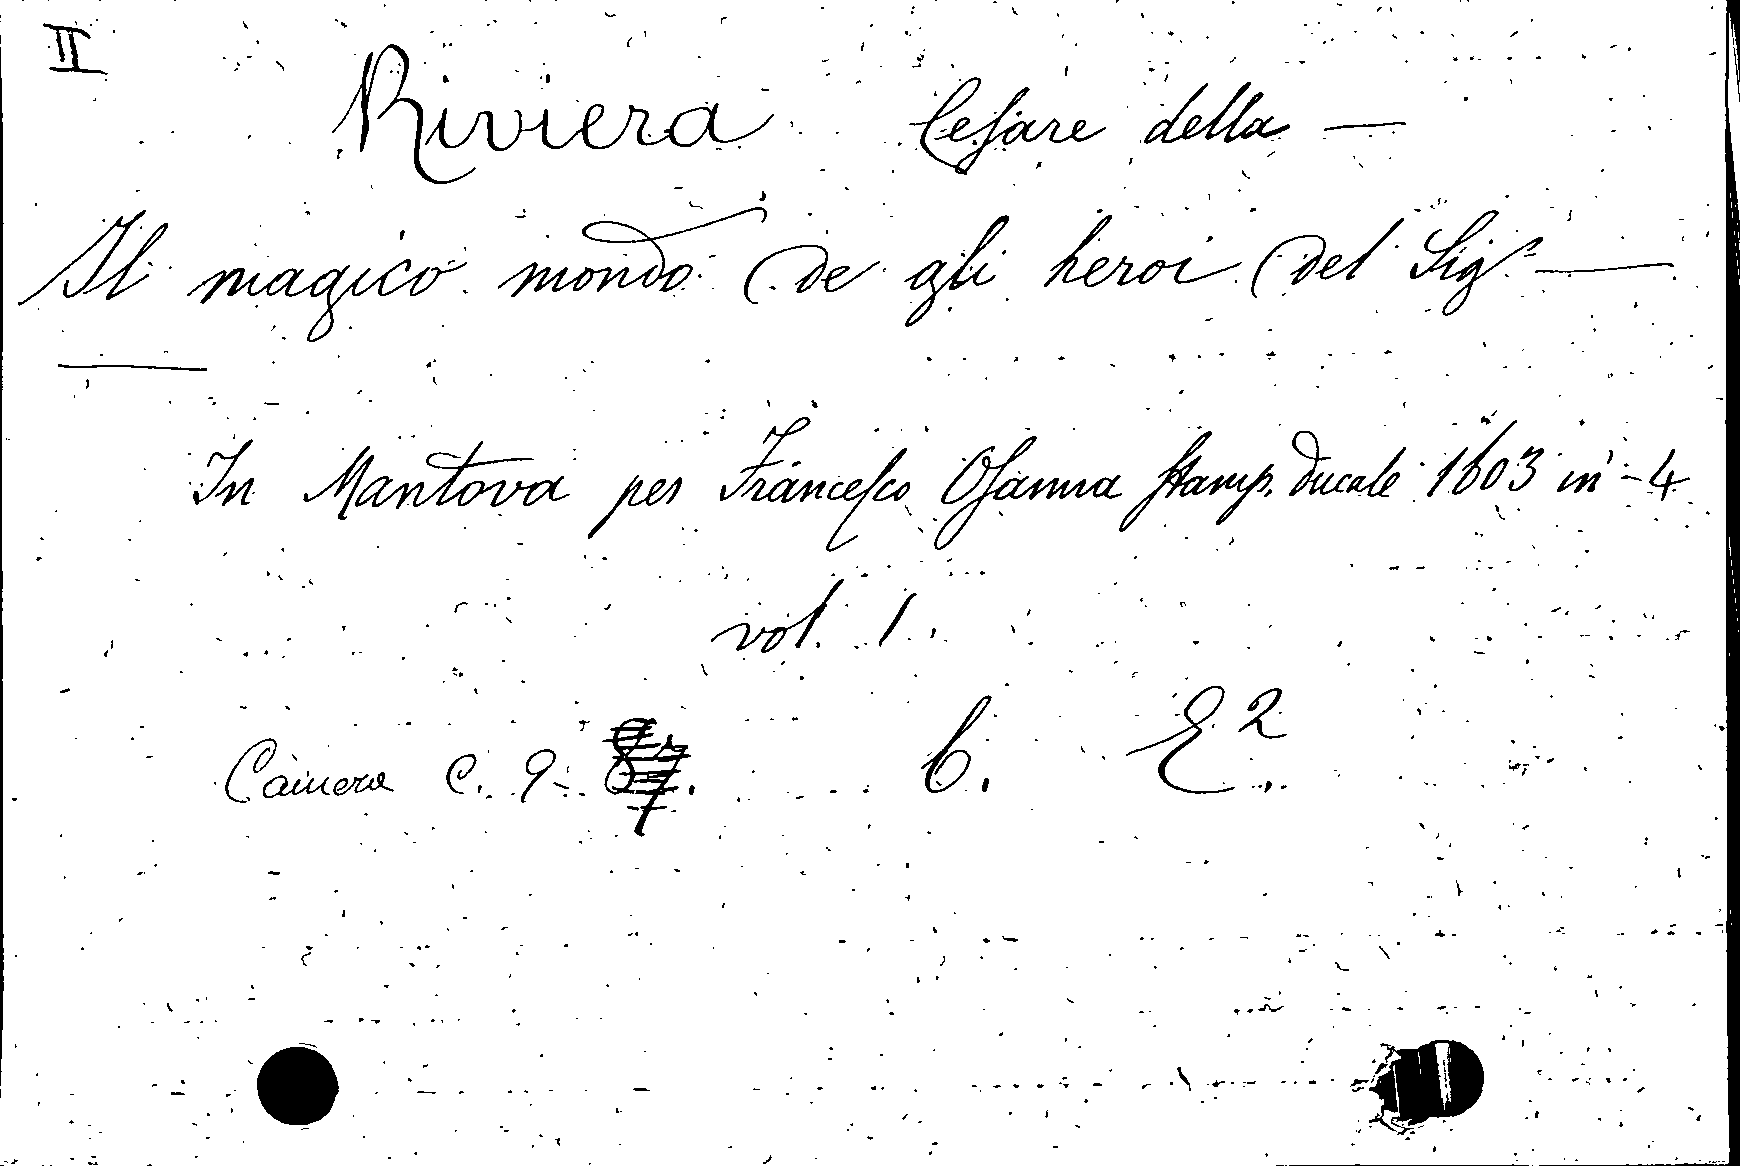 II
Riviera Cesare della —
Il magico mondo de gli heroi del Sig.r —
—
In Mantova per Francesco Osanna Stamp. ducale 1603 in-4
vol. 1.
Camera C. 9- 87. 6. E2.